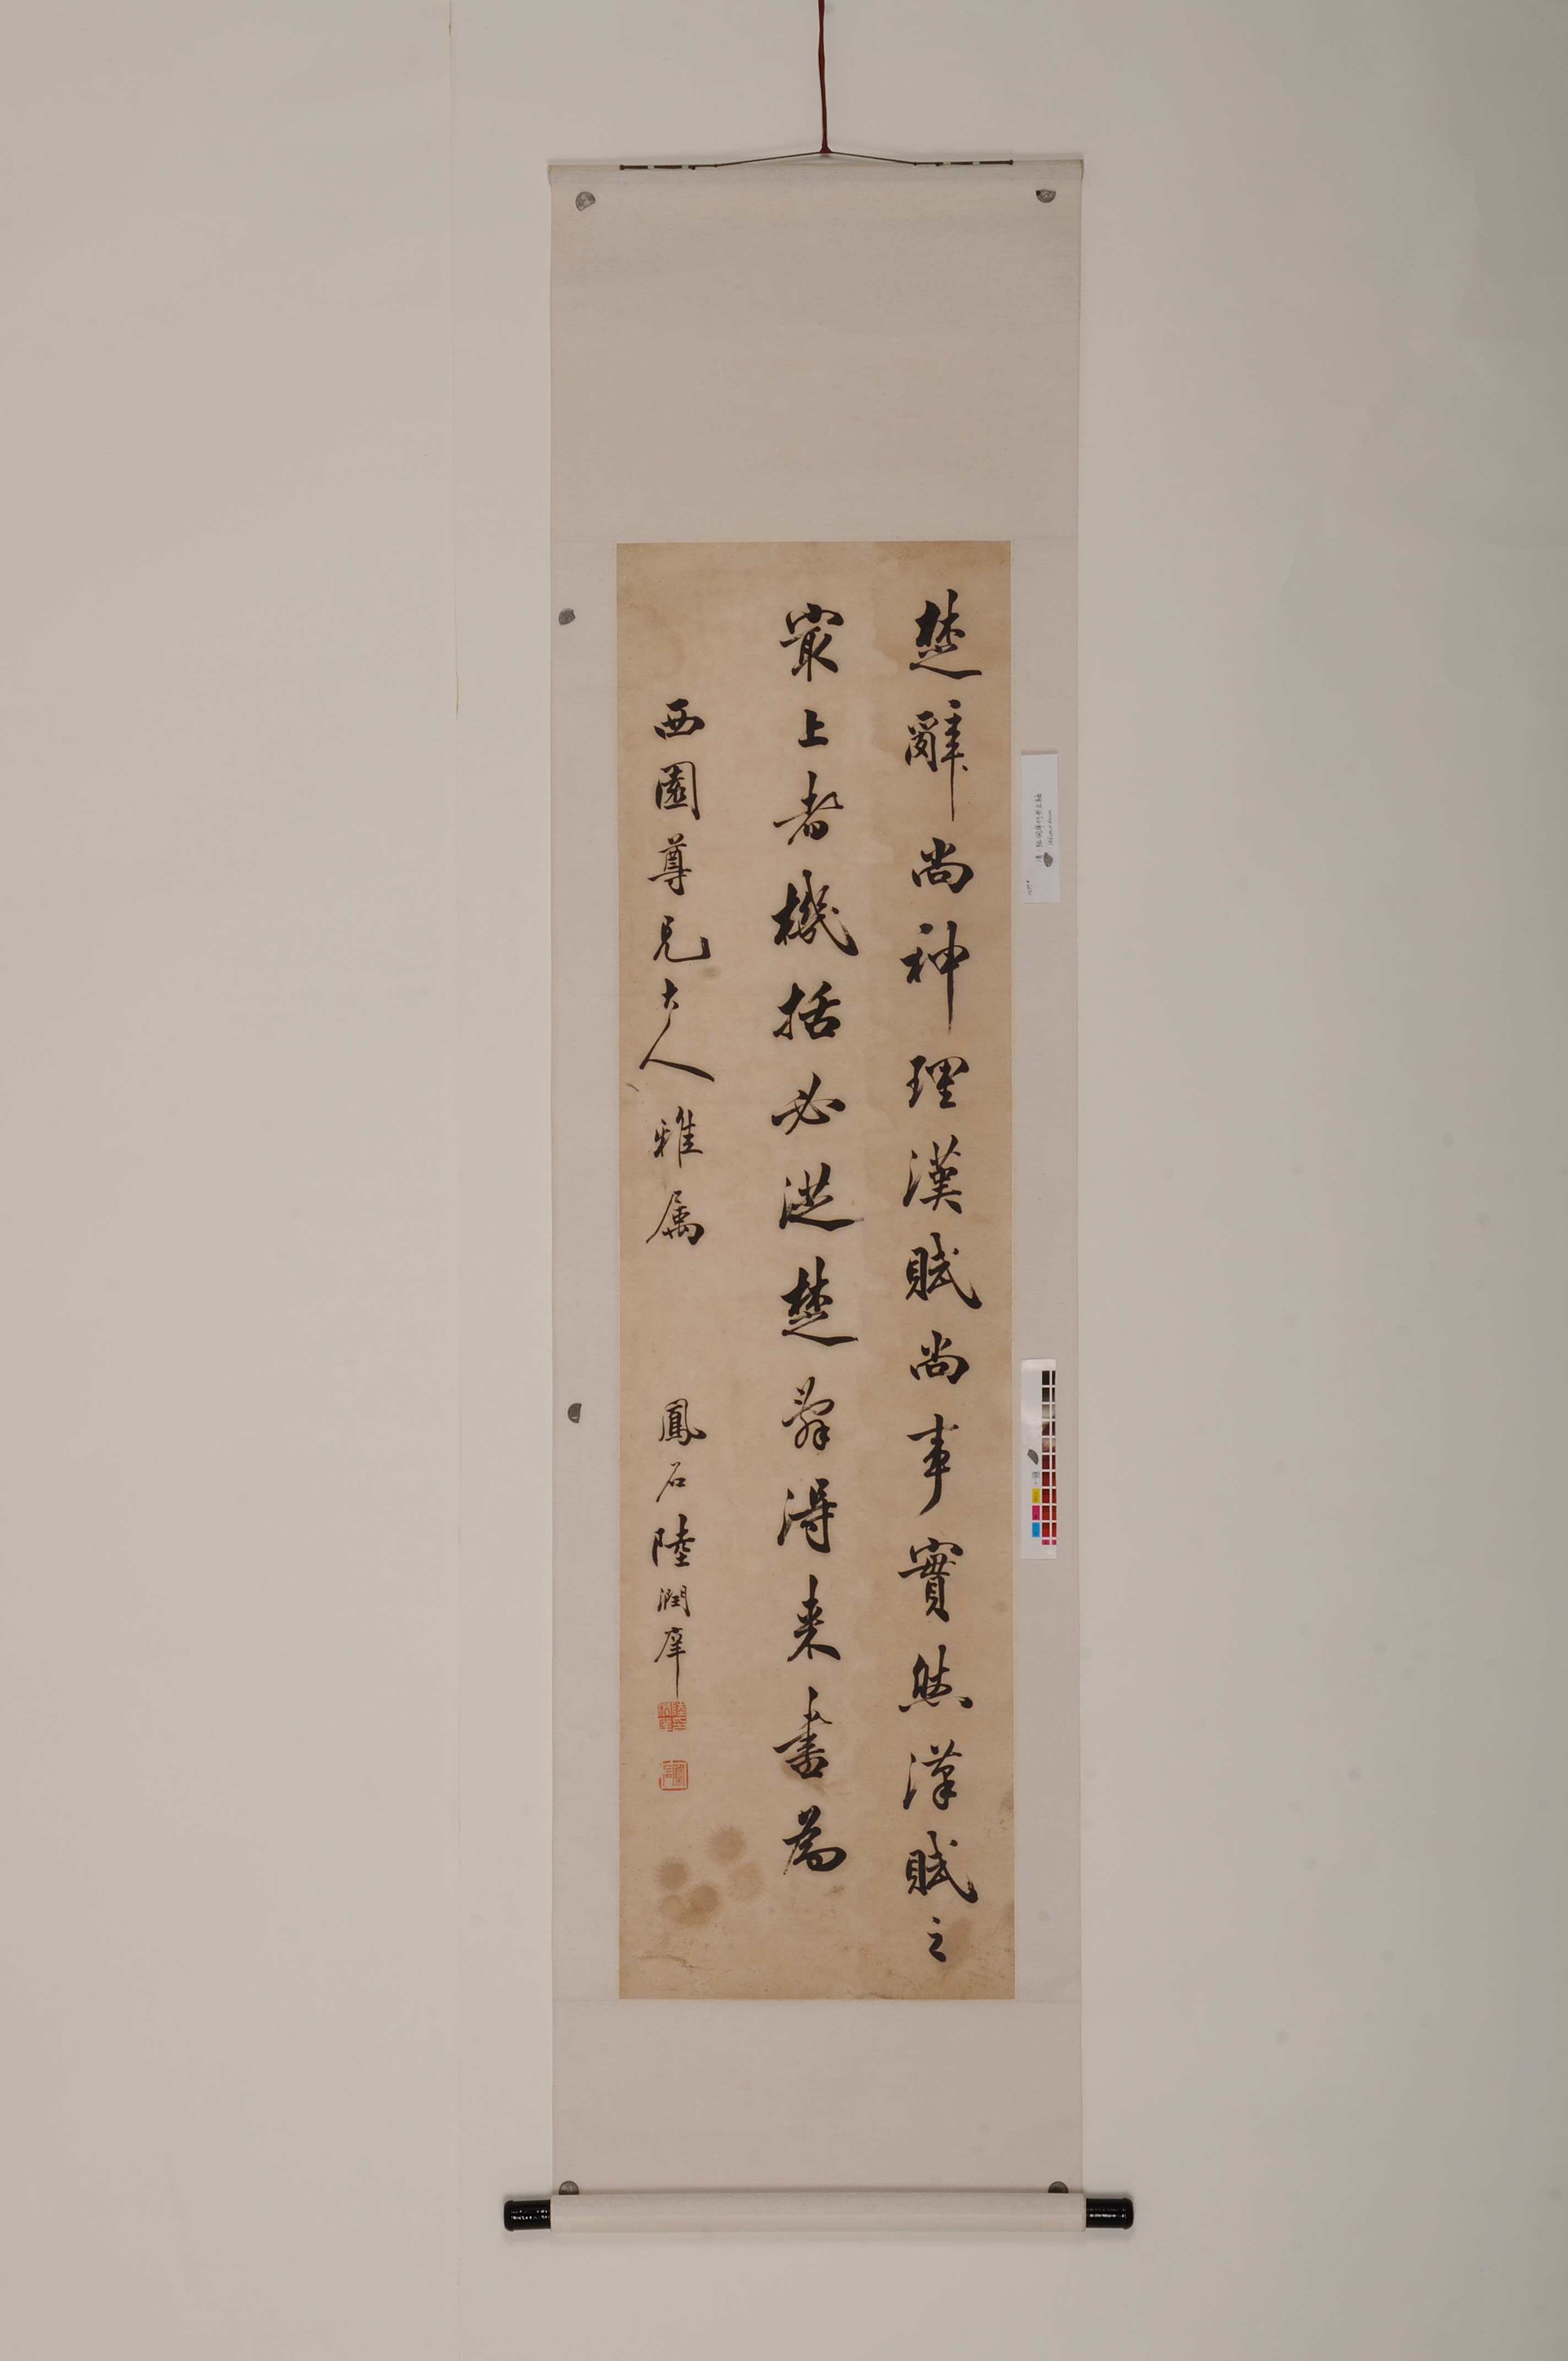 楚辭尚神理漢賦尚事實然漢賦之
最上者機括必從楚辭得来書為
西園尊兄大人雅属
鳳石陸潤庠